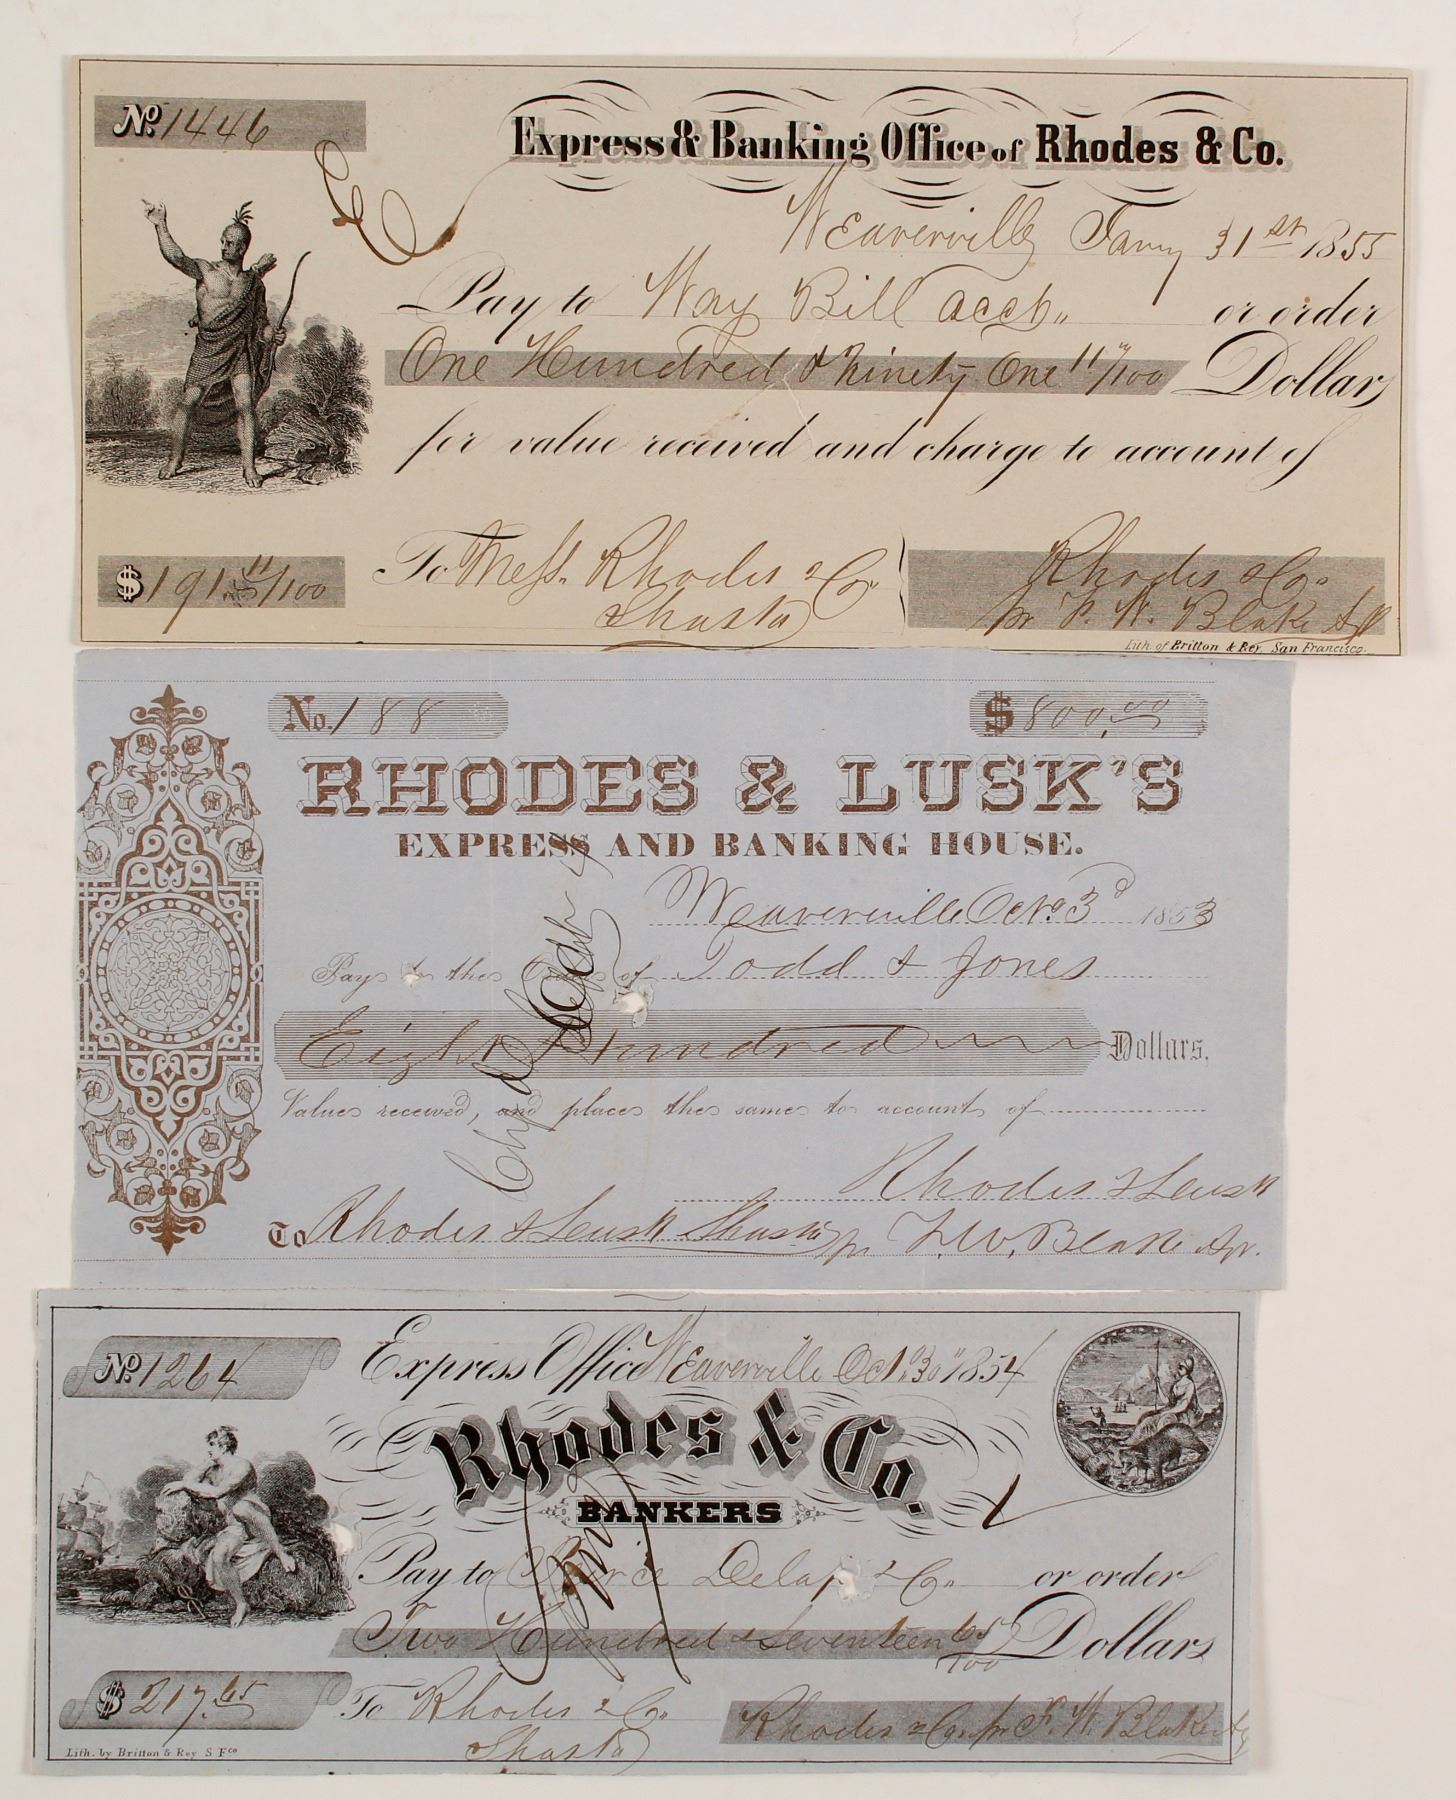 No. 1446
Express & Banking Office of Rhodes & Co.
Weaverville Jany 31st 1855
Pay to Way Bill acct. or order
One Hundred & Ninety One 11/100 Dollars
for value received and charge to account of
$191 11/100
To Mess. Rhodes & Co.
Shasta
Rhodes & Co.
pr F. W. Blake Agt
Lith. of Britton & Rey, San Francisco.
No. 188
$800.00
RHODES & LUSK'S
EXPRESS AND BANKING HOUSE.
Weaverville Octo 3d 1853
Pay to the Order of Todd & Jones
Eight Hundred Dollars,
Value received, and place the same to account of
Rhodes & Lusk
To Rhodes & Lusk Shasta pr F. W. Blake Agt.
No. 1264
Express Office Weaverville Oct. 30" 1854
Rhodes & Co.
BANKERS
Pay to Delap & Co. or order
Two Hundred & Seventeen 65/100 Dollars
$217.65
To Rhodes & Co.
Shasta
Rhodes & Co. pr F. W. Blake Agt
Lith. by Britton & Rey S Fco